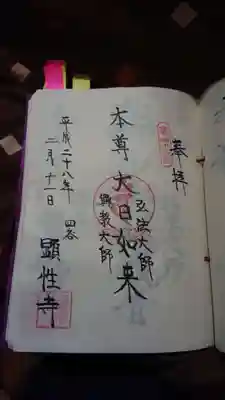 奉拝
弘法大師
本尊大日如来
興教大師
四谷
顕性寺
平成二十八年
二月十一日